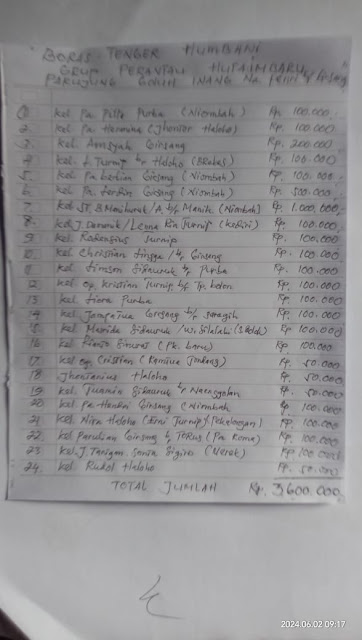 BORAS TENGER HUMBANI
GRUP PERANTAU HUTAIMBARU
PARUJUNG GOLUH INANG Na.
1. Kel Pa. Pitta Purba (Niombah) Rp 100.000
2. Kel pa. Hermina (Jhoniter Haloho) Rp. 100.000
3. Kel. Amsyah Ginsang Rp. 200.000
4. Kel. L. Turnip br Haloho (BRatas) Rp. 100.000
5. Kel. Pa berlian Ginsang (Niombah) Rp. 100.000
6. Kel pa. ferdin Ginsang (Niombah) Rp. 500.000
7. Kel ST. B Manihuruk/A. br Manik (Niombah) Rp. 1.000.000
8. Kel J. Damanik/Leena Ria Turnip (Kediri) Rp. 100.000
9. Kel Rademgius Turnip Rp. 100.000
10. Kel Christian Lingga/br Ginsang Rp. 100.000
11. Kel Timson Sihauruk br Purba Rp. 100.000
12. Kel op. Kristian Turnip br Tp. bolon Rp. 100.000
13. Kel Tiora Purba Rp. 100.000
14. Kel Ginsang br saragih Rp. 100.000
15. Kel Marida Sihaurur /W. Silalahi (S. Holok) Rp 100.000
16. Kel Sinurat (Pk. baru) Rp 100.000
17. Kel op. Cristian (Ramlua Jombang) Rp. 50.000
18. Jhontarius Haloho Rp. 50.000
19. Kel. Juanda Sihauruk br Nainggolan Rp. 50.000
20. Kel pa Handri Ginsang (Niombah) Rp 100.000
21. Kel. Nixon Haloho (Erni Turnip) Pekalongan) Rp. 100.000
22. Kel. Parulian Ginsang br Tarus (Pa Roma) Rp. 100.000
23. Kel. J. Tarigan. Sonia Sigiro (Merek) Rp. 100.000
24. Kel Rukol Haloho Rp. 50.000
TOTAL JUMLAH Rp. 3,600.000
2024.06.02 09:17